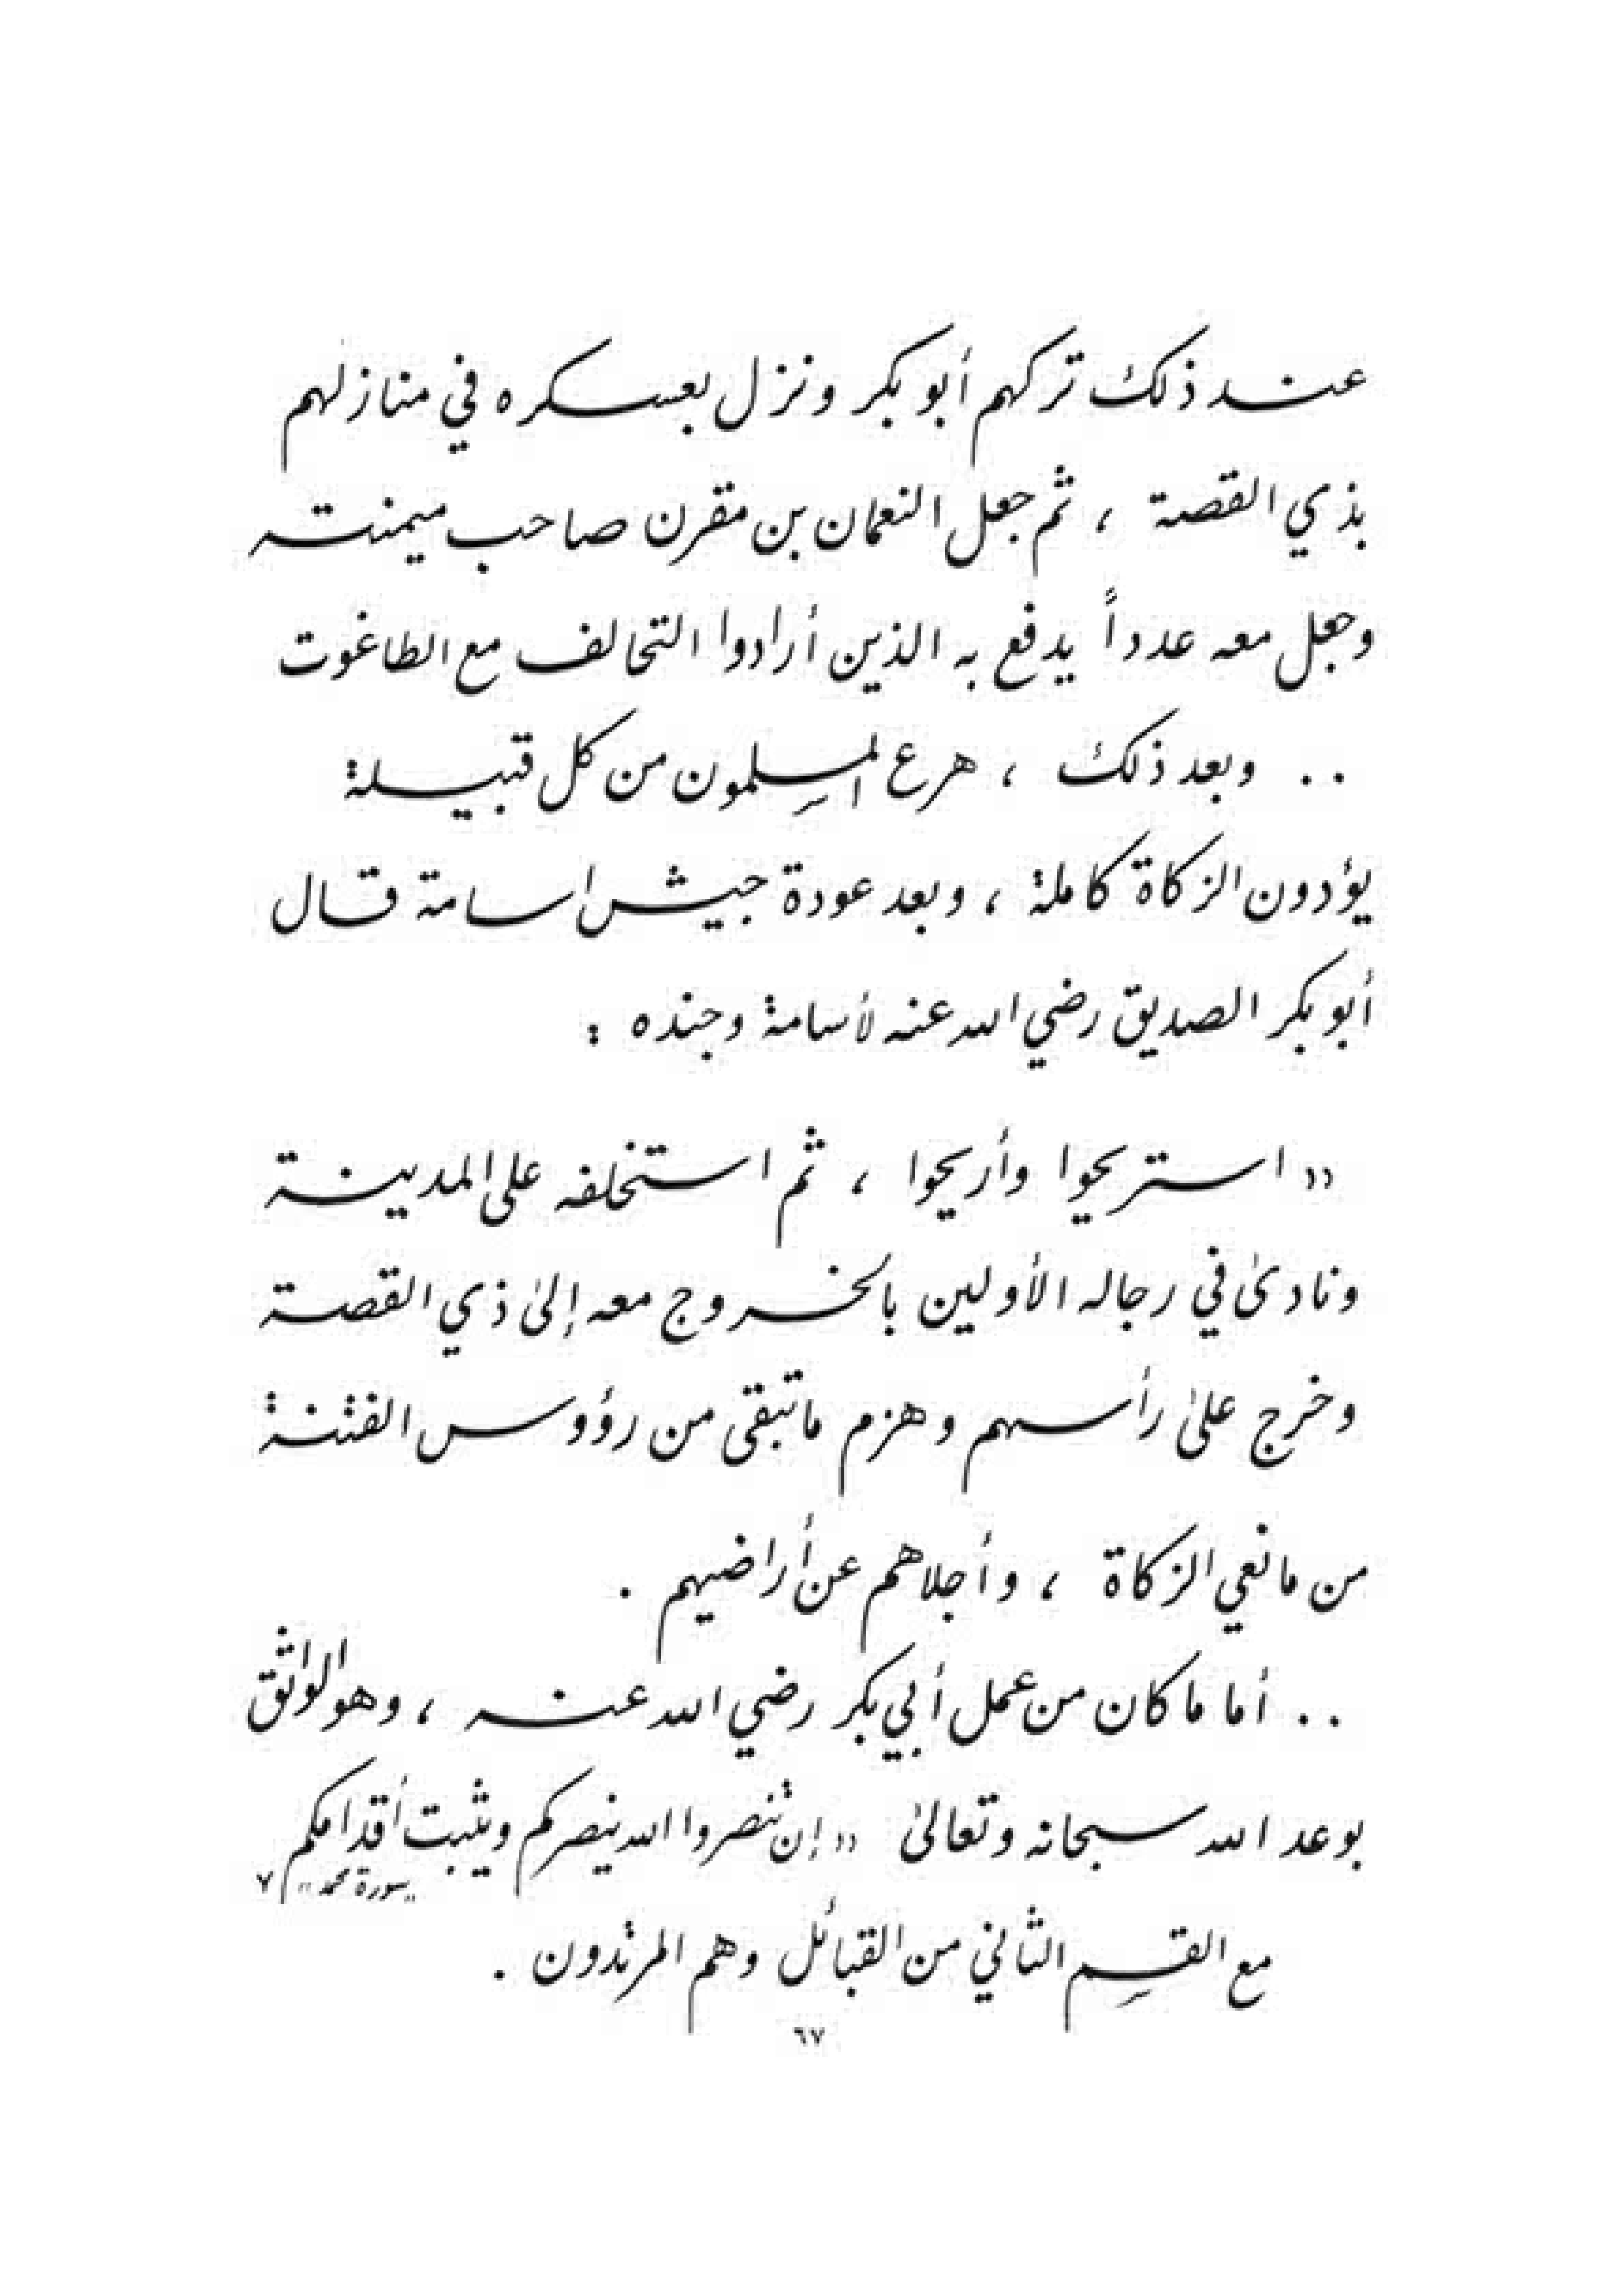 عند ذلك تركهم أبو بكر ونزل بعسكره في منازلهم
بذي القصة ، ثم جعل النعمان بن مقرن صاحب ميمنته
وجعل معه عدداً يدفع به الذين أرادوا التحالف مع الطاغوت
.. وبعد ذلك ، هرع المسلمون من كل قبيلة
يؤدون الزكاة كاملة ، وبعد عودة جيش اسامة قال
أبو بكر الصديق رضي الله عنه لأسامة وجنده :
« استريحوا وأريحوا ، ثم استخلفه على المدينة
ونادىٰ في رجاله الأولين بالخروج معه إلىٰ ذي القصة
وخرج علىٰ رأسهم وهزم ماتبقى من رؤوس الفتنة
من مانعي الزكاة ، وأجلاهم عن أراضيهم .
.. أما ما كان من عمل أبي بكر رضي الله عنه ، وهو الواثق
بوعد الله سبحانه وتعالىٰ « إن تنصروا الله ينصركم ويثبت أقدامكم
"سورة محمد" ٧
مع القسم الثاني من القبائل وهم المرتدون .
٦٧